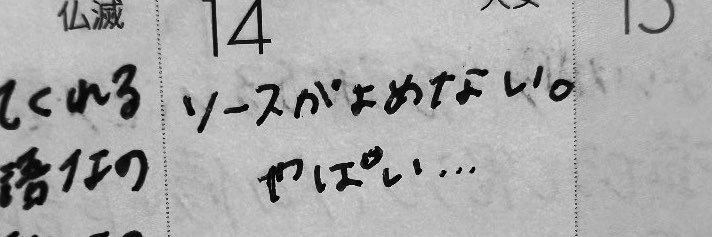 仏滅 14 15
てくれる ソースがよめない。
語なの やばい…